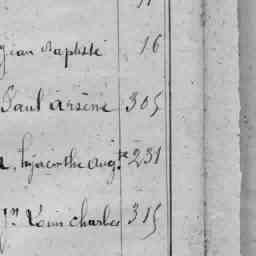 Jean Baptiste 16
Paul arsène 305
hyacinthe aug.te 231
Jn Louis charles 315